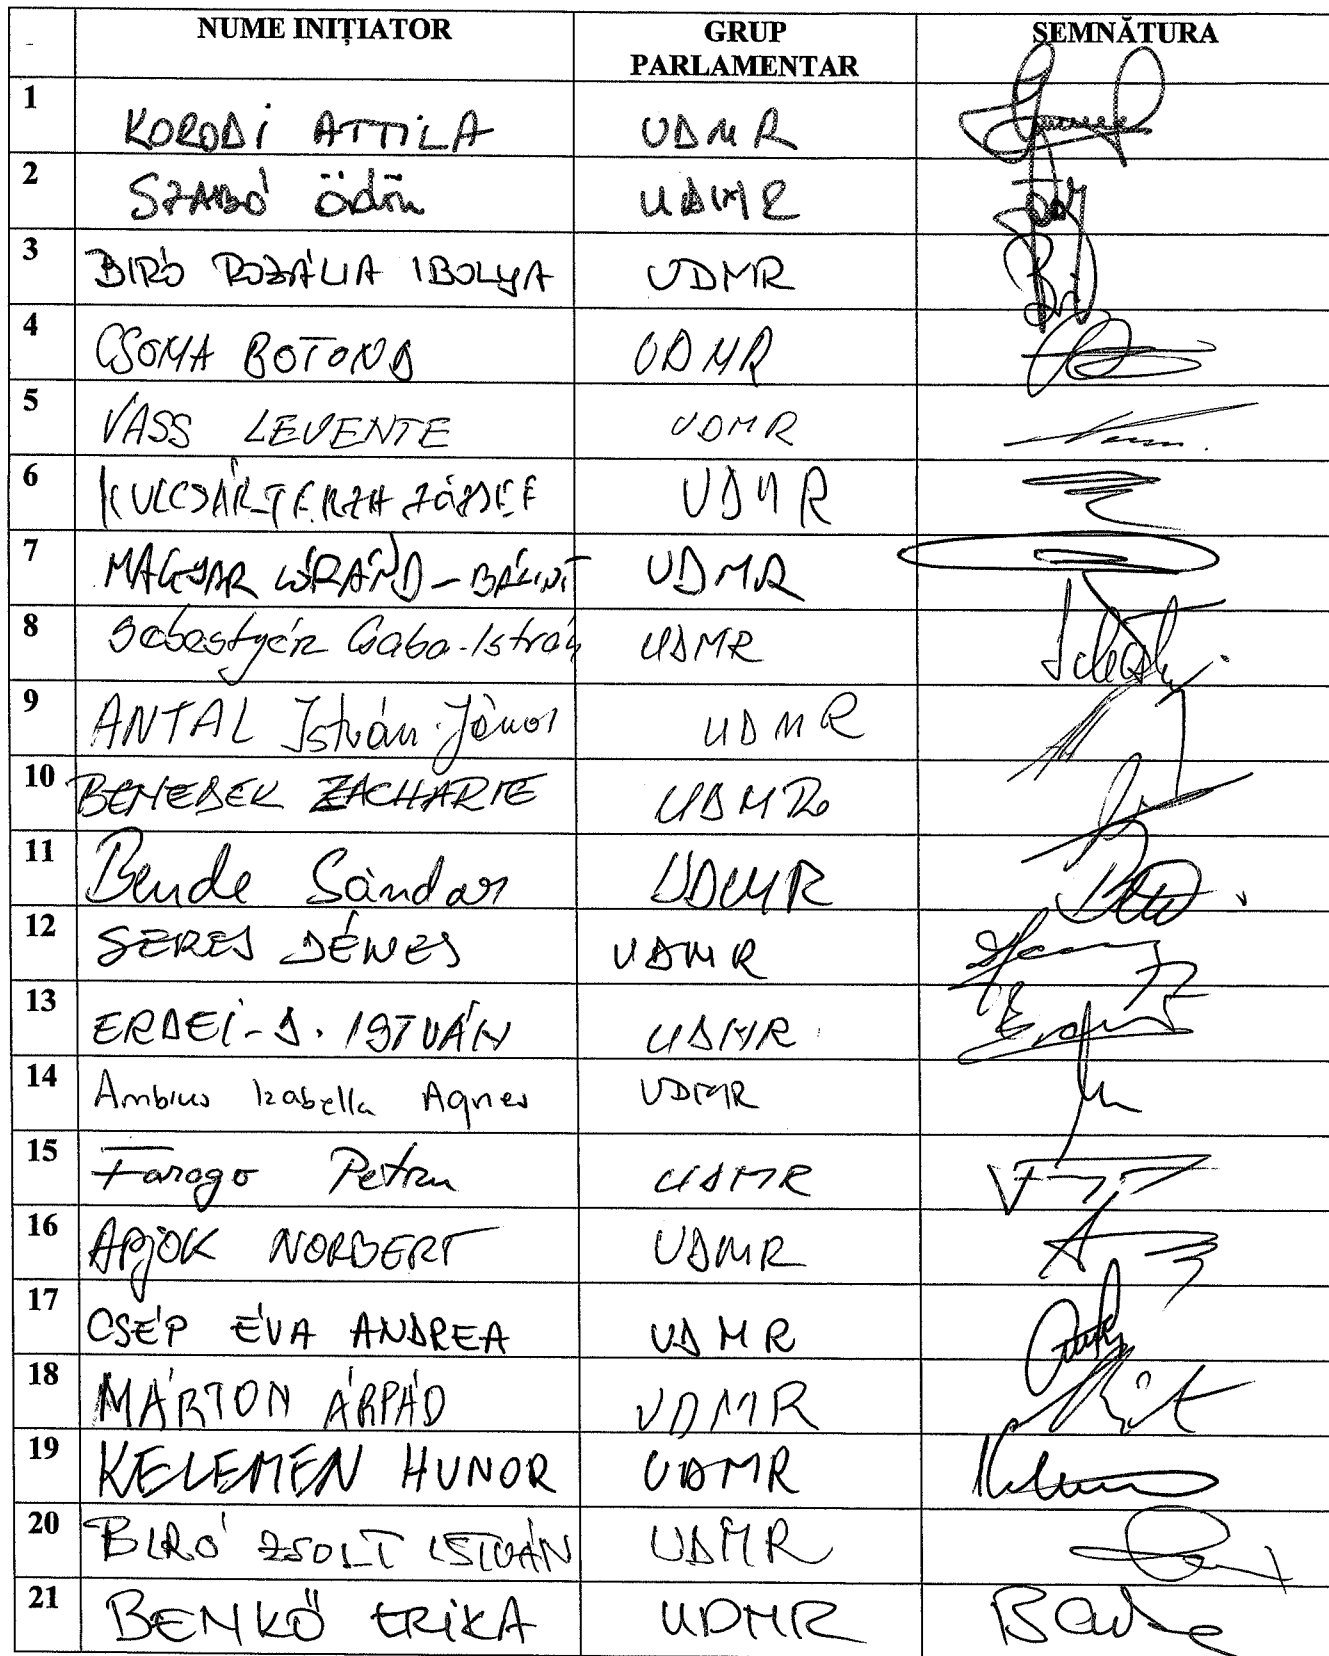 NUME INIȚIATOR GRUP PARLAMENTAR SEMNĂTURA
1 KORODI ATTILA UDMR
2 SZABÓ Ödön UDMR
3 BIRÓ ROZÁLIA IBOLYA UDMR
4 CSOMA BOTOND UDMR
5 VASS LEVENTE UDMR
6 KULCSÁR-TERZA JÓZSEF UDMR
7 MAGYAR LÓRÁND-BÁLINT UDMR
8 Sebestyén Csaba-István UDMR
9 ANTAL István-János UDMR
10 BENEDEK ZACHARIE UDMR
11 Bende Sándor UDMR
12 SERES DÉNES UDMR
13 ERDEI-D. ISTVÁN UDMR
14 Ambrus Izabella Agnes UDMR
15 Farago Petru UDMR
16 APJOK NORBERT UDMR
17 CSÉP ÉVA ANDREA UDMR
18 MÁRTON ÁRPÁD UDMR
19 KELEMEN HUNOR UDMR
20 BIRÓ ZSOLT ISTVÁN UDMR
21 BENKŐ ERIKA UDMR